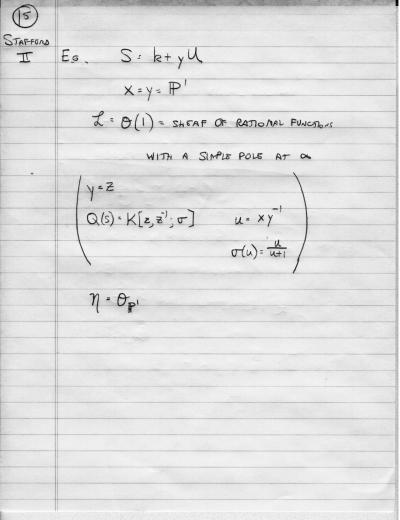 15
STAFFORD
II
EG. S = k + yU
X = Y = ℙ¹
ℒ = O(1) = SHEAF OF RATIONAL FUNCTIONS
WITH A SIMPLE POLE AT ∞
y = z
Q(S) = K[z, z⁻¹; σ] u = xy⁻¹
σ(u) = u/(u+1)
η = O_ℙ¹